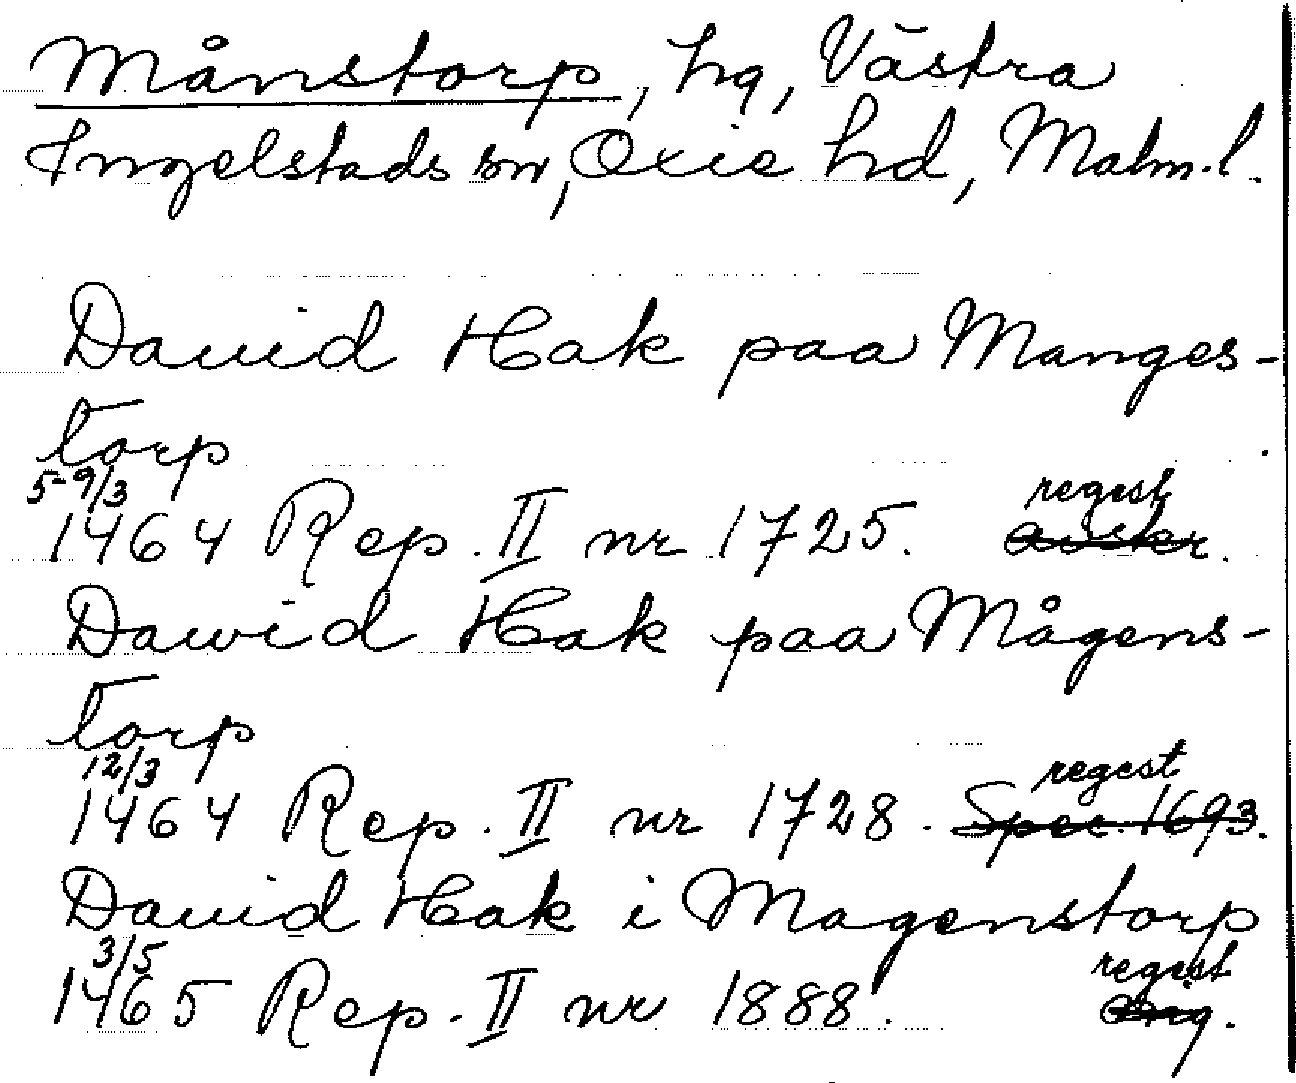 Månstorp, hg, Västra
Ingelstads sn, Oxie hd, Malm.l.
Dauid Hak paa Manges-
torp
5-9/3 regest
1464 Rep. II nr 1725. avskr.
Dawid Hak paa Mågens-
torp
12/3 regest
1464 Rep. II nr 1728. Spec. 1693.
Dauid Hak i Magenstorp
3/5 regest
1465 Rep. II nr 1888.